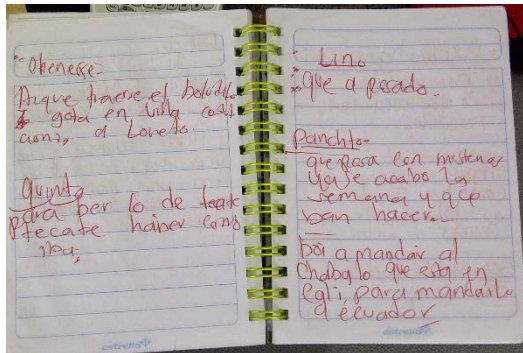 Obenesse-
Aque traerse el
gota en villa const
a Loreto.
Quinto
para ber lo de tecate
tecate haber como
estrella
Lino
que a pasado-
Panchito-
que pasa con mis temas
ya se acabo la
semana y que
ban hacer-
boi a mandar al
chabalo que esta en
cali, para mandarlo
a ecuador
estrella